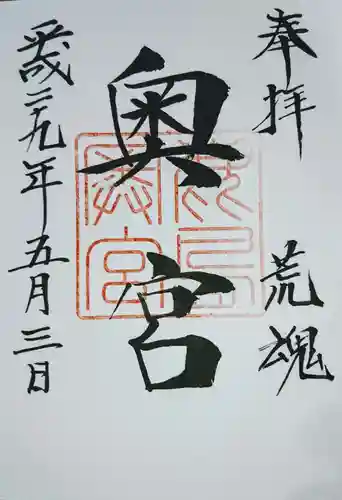 奉拝 荒魂
奥宮
平成二九年五月三日